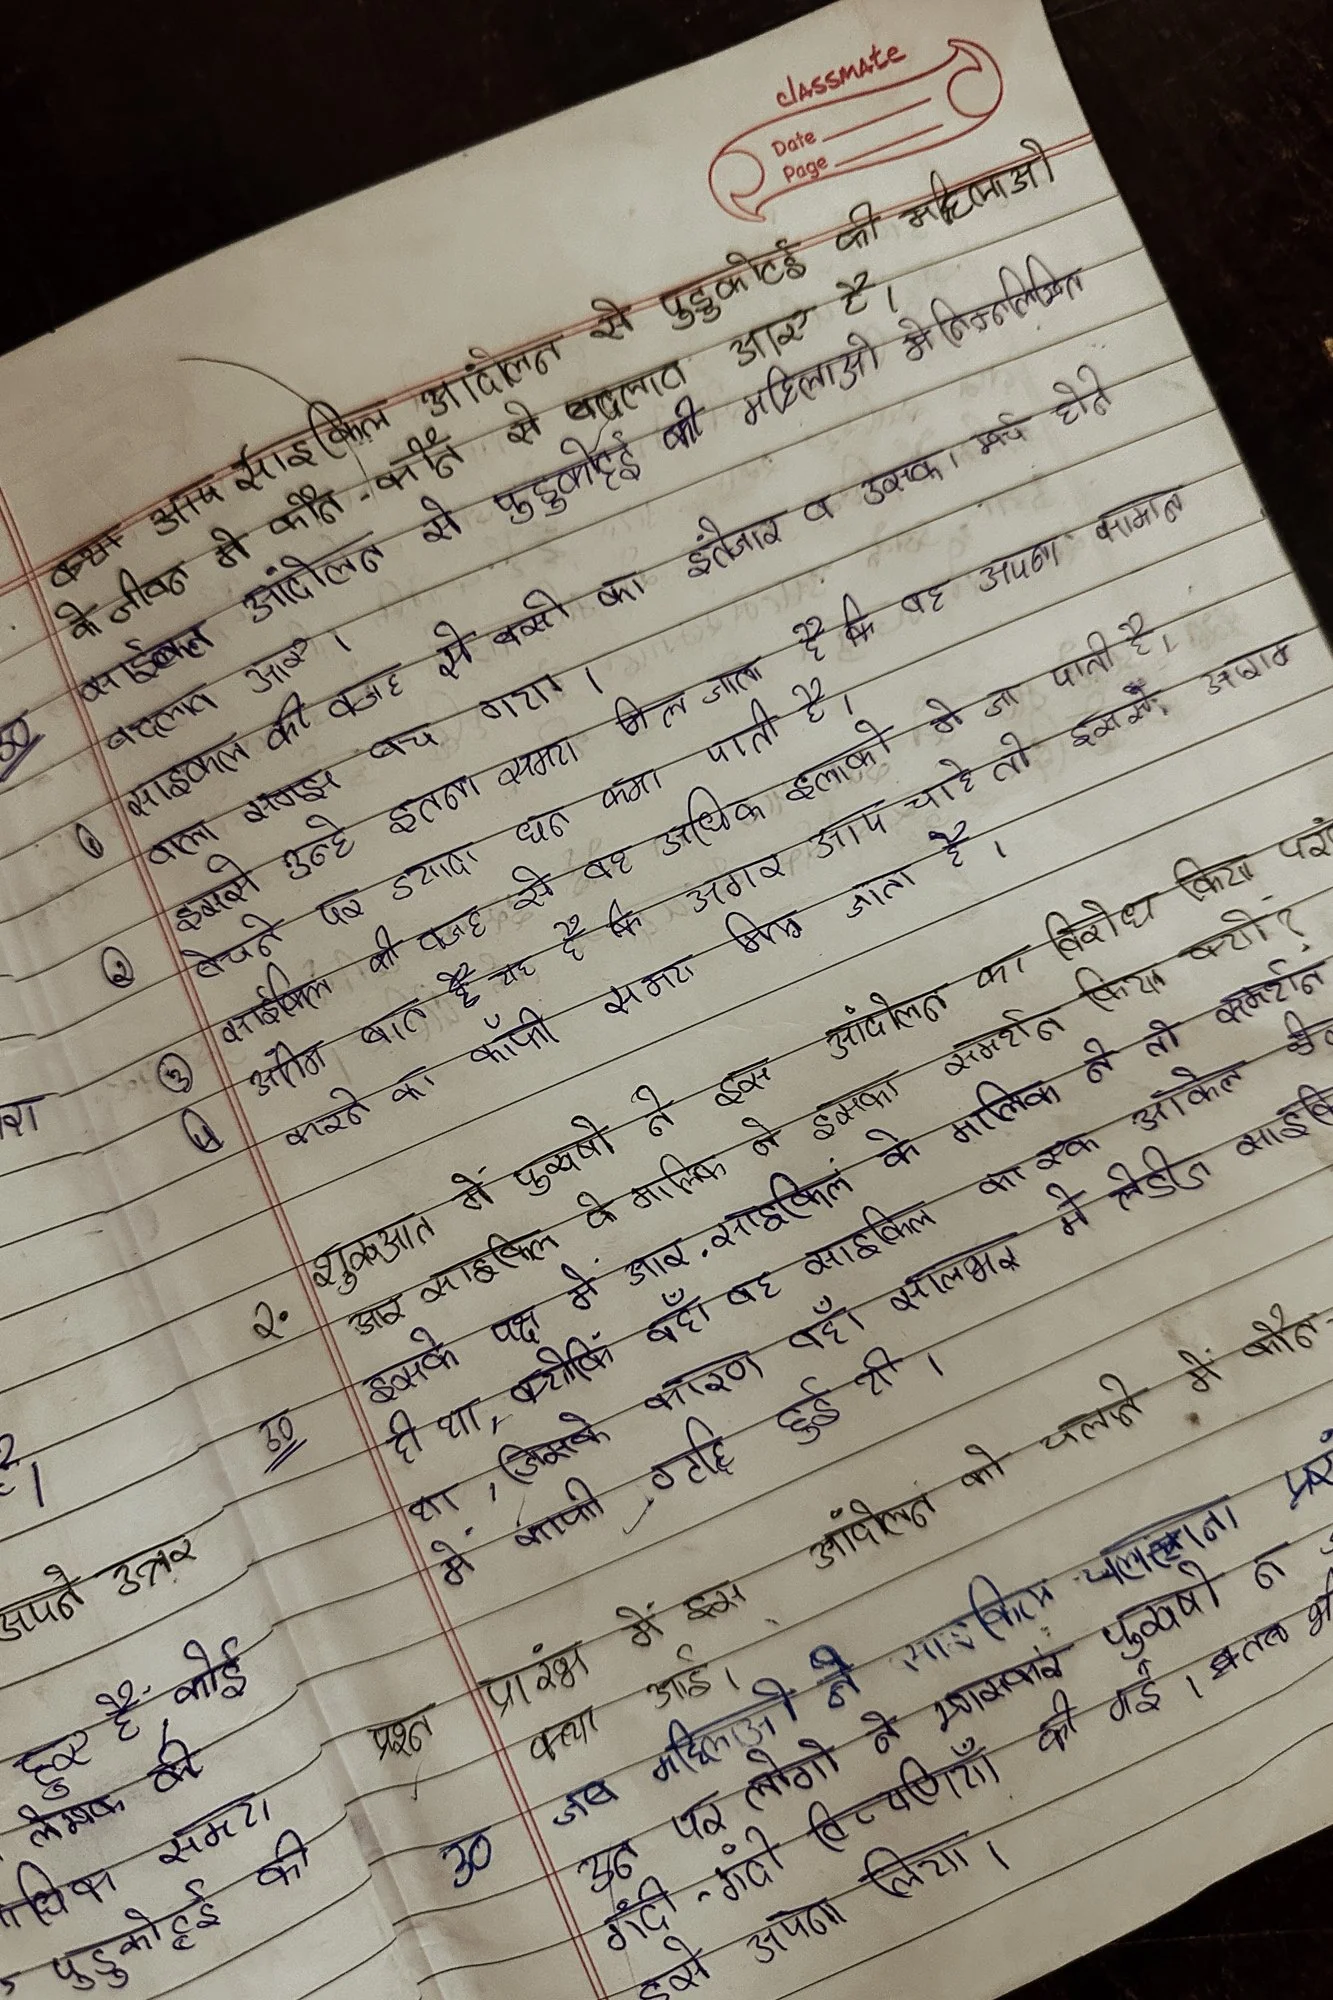 classmate
Date
Page
क्या आप साइकिल आंदोलन से पुडुकोट्ई की महिलाओ
के जीवन मे कौन-कौन से बदलाव आए है।
उ० साईकिल आंदोलन से पुडुकोट्टई की महिलाओ मे निम्नलिखित
बदलाव आए।
① साइकल की वजह से बसो का इंतेजार व उसका खर्च होने
वाला समझ बच गया।
इससे उन्हे इतना समय मिल जाता है कि वह अपना सामान
बेचने पर ज्यादा धन कमा पाती है।
② साईकिल की वजह से वह अधिक इलाको मे जा पाती है।
③ अंतिम बात है यह है कि अगर आप चाहे तो इससे आराम
④ करने का कॉफी समय मिल जाता है।
शुरूआत में पुरूषो ने इस आंदोलन का विरोध किया परं
२. आर साइकिल के मालिक ने इसका समर्थन किया क्यो?
इसके पक्ष में आर. साइकिल के मालिक ने तो समर्थन
उ० ही था, क्योकिं वहाँ वह साइकिल का एक
था, जिसके कारण वहाँ सालभर में लेडीज साइकि
में काफी हुई थी।
प्रश्न प्रारंभ में इस आंदोलन को चलाने में कौन-
क्या आई।
उ० जब महिलाओ ने साइकिल चलाना
उन पर लोगो ने खासकर पुरूषो न
गंदी-गंदी टिप्पणियाँ की गई।
इसे अपना लिया।
है।
अपने उत्तर
हुए है, कोई
लेखक की
धिक समय
पुडुकोट्टई की